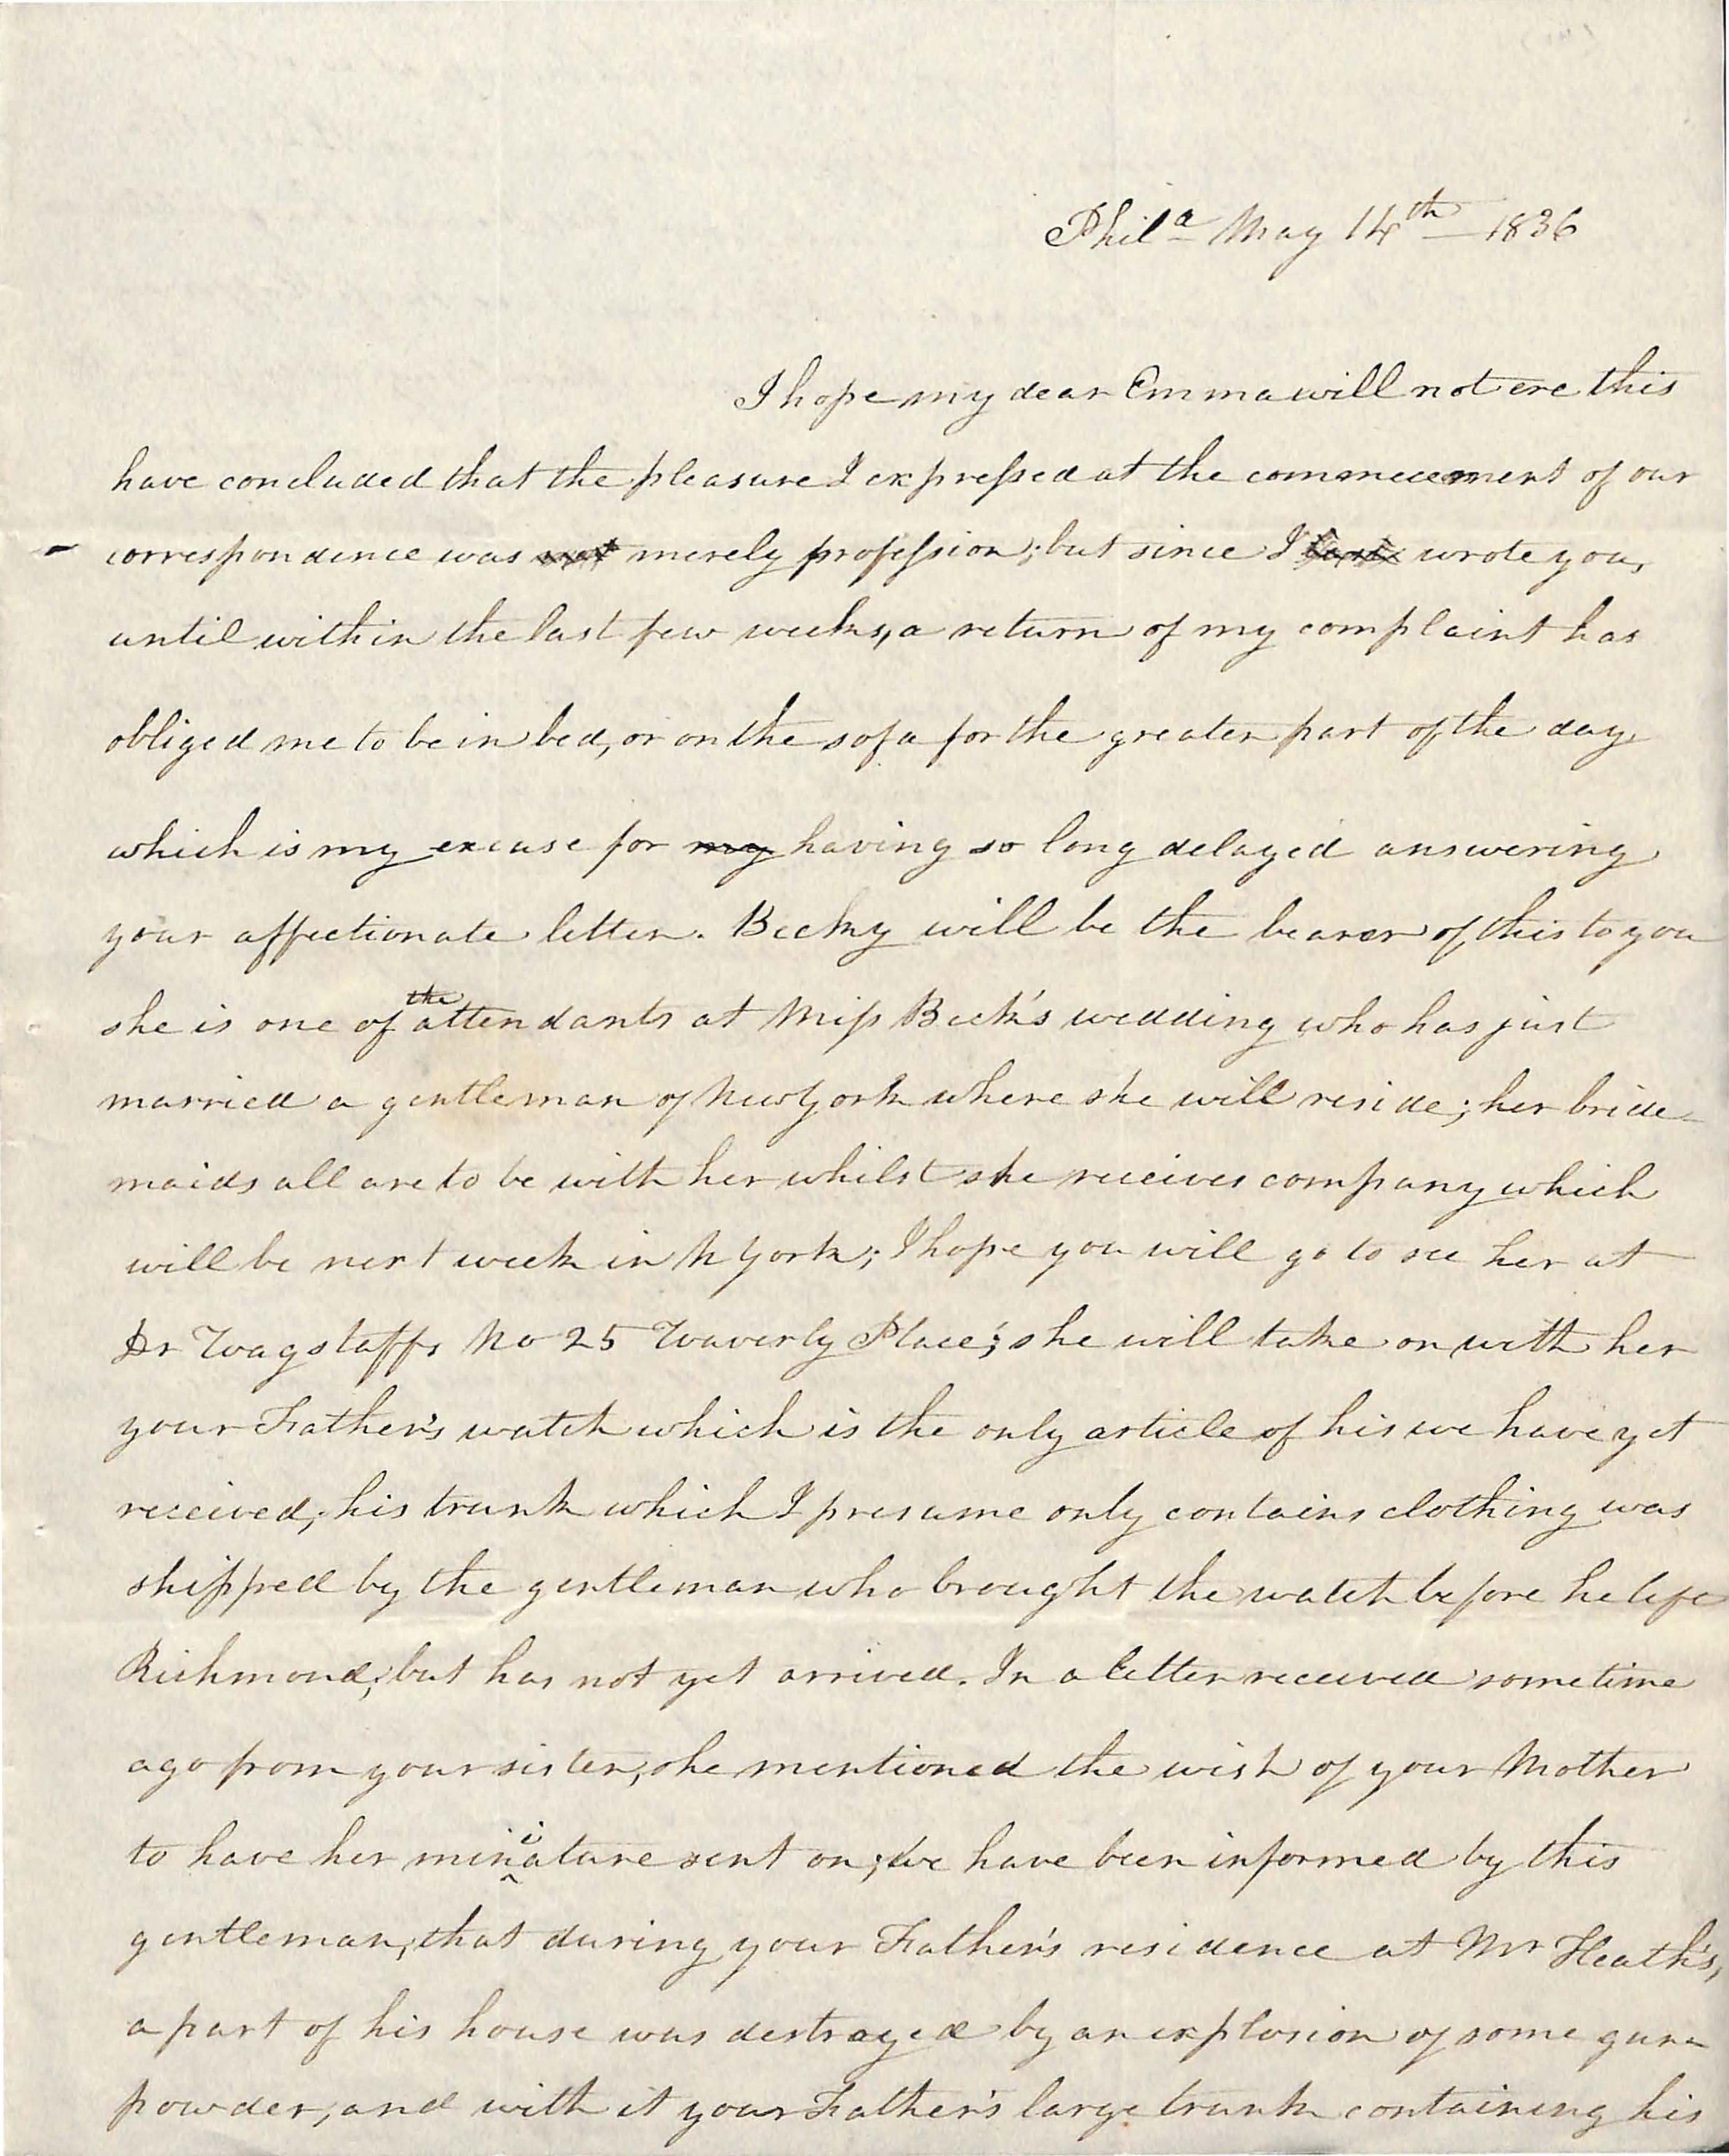 Phila May 14th 1836
I hope my dear Emma will not ere this
have concluded that the pleasure I expressed at the commecement of our
correspondence was not merely profession; but since I last wrote you,
until within the last few weeks, a return of my complaint has
obliged me to be in bed, or on the sofa for the greater part of the day
which is my excuse for my having so long delayed answering
your affectionate letter. Becky will be the bearer of this to you
she is one of the attendants at Miss Beck's wedding who has just
married a gentleman of New York where she will reside; her bride-
maids all are to be with her whilst she receives company which
will be next week in N York; I hope you will go to see her at
Dr Wagstaffs No 25 Waverly Place; she will take on with her
your Father's watch which is the only article of his we have yet
received; his trunk which I presume only contains clothing was
shipped by the gentleman who brought the watch before he left
Richmond; but has not yet arrived. In a letter received sometime
ago from your sister, she mentioned the wish of your Mother
to have her miniature sent on; we have been informed by this
gentleman, that during your Father's residence at Mr Heath's,
a part of his house was destroyed by an explosion of some gun-
powder, and with it your Father's large trunk containing his